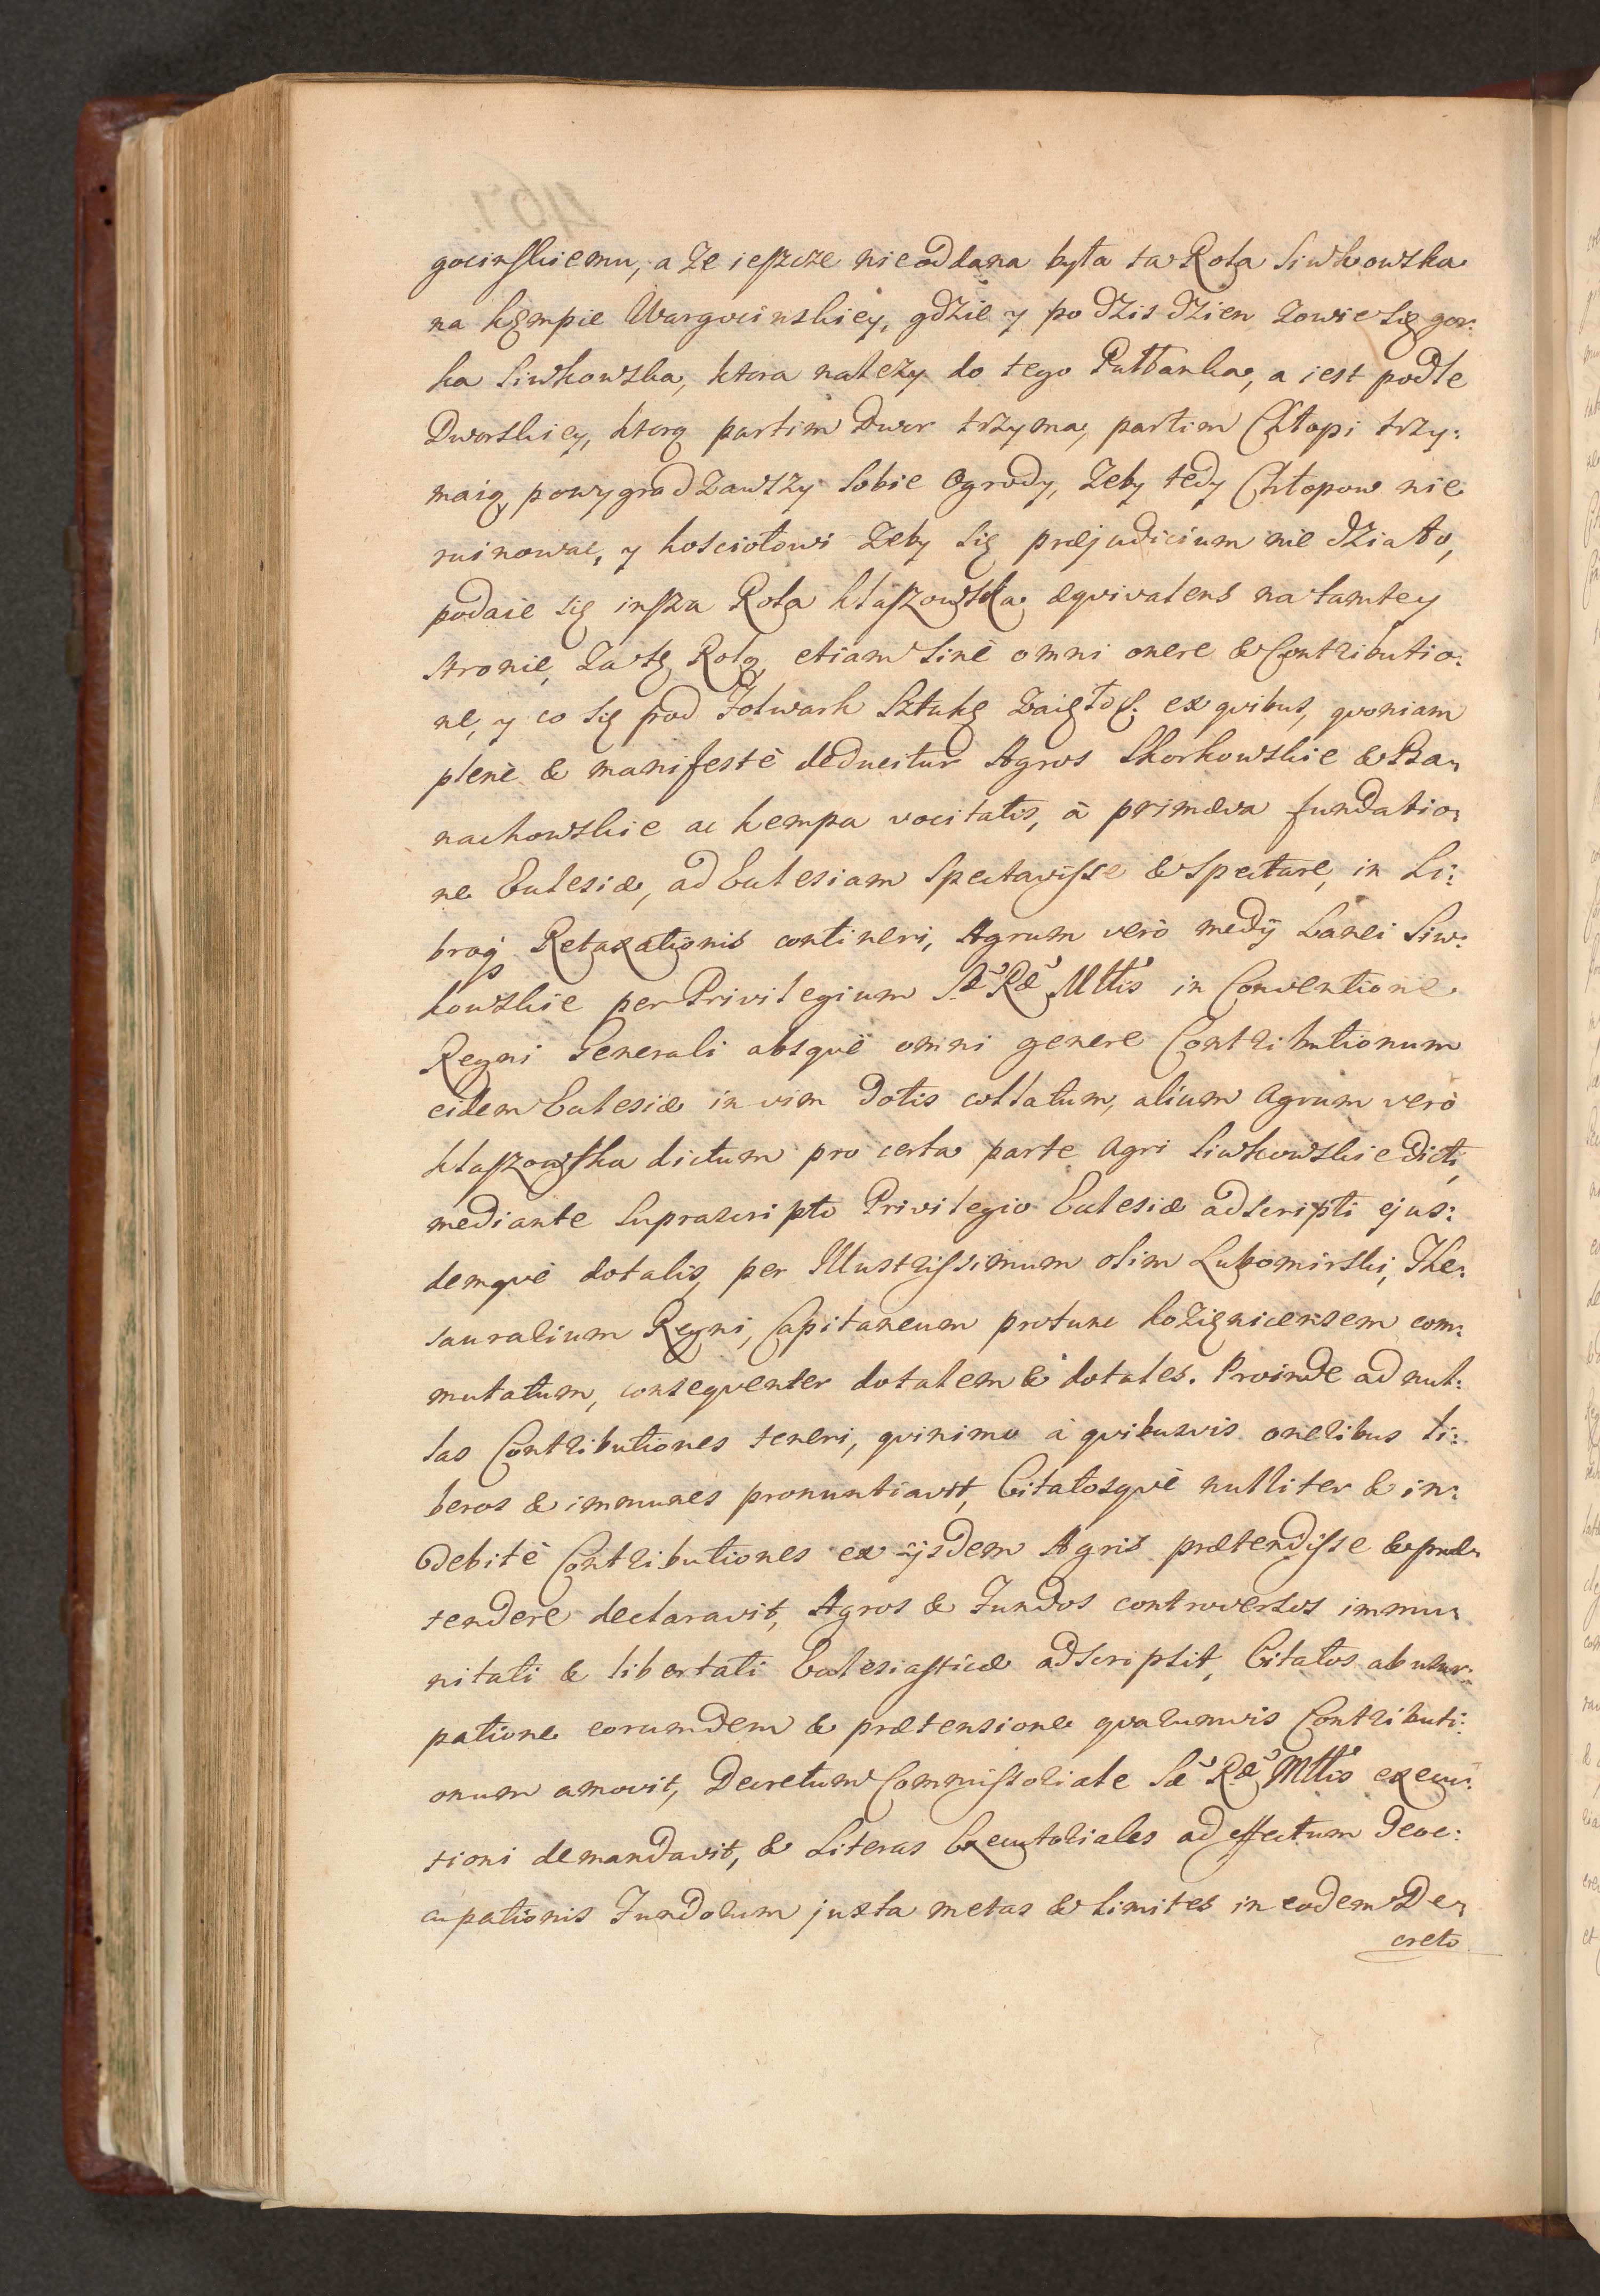 gocinskiemu, a że ieszcze nieoddana była ta Rola Siwkowska
na kęmpie Wargocinskiey, gdzie y po dzis dzien zowie się gor:
ka Siwkowska, ktora należy do tego Pułłanka, a iest podle
Dworskiey, ktorą partim Dwor trzyma, partim Chłopi trzy:
maią, powygradzawszy sobie Ogrody, żeby tedy Chłopow nie
ruinować, y kosciołowi żeby się præjudicium nie działo,
podaie się insza Rola Kłaszowska æqvivalens na tamtey
stronie, za tę Rolą, etiam sinè omni onere & Contributio:
ne, y co się pod Folwark sztukę zaięło. ex qvibus, qvoniam
plenè & manifestè deducitur Agros Skorkowskie & Ba:
nachowskie ac kempa vocitatis, à primæva fundatio:
ne Eclesiæ, ad Eclesiam spectavisse & spectare, in Li:
braq Retaxationis contineri, Agrum verò medÿ Lanei Siw:
kowskie per Privilegium Sæ Ræ Mttis in Conventione
Regni Generali absqvè omni genere Contributionum
eidem Eclesiæ in vim dotis collatum, alium Agrum verò
Kłaszowska dictum pro certa parte Agri Siwkowskie dicti,
mediante suprascripto Privilegio Eclesiæ adscripti ejus:
demqvè dotalis, per Illustrissimum olim Lubomirski, The:
sauralium Regni, Capitaneum protunc kozięnicensem com:
mutatum, conseqventer dotalem & dotales. Proinde ad nul:
las Contributiones teneri, qvinimo à qvibusvis oneribus li:
beros & immunes pronuntiavit, Citatosqvè nulliter & in:
debitè Contributiones ex ijsdem Agris prætendisse & præ:
tendere declaravit, Agros & Fundos controversos immu:
nitati & libertati Eclesiasticæ adscripsit, Citatos ab usur:
patione eorumdem & prætensione qvarumvis Contributi:
onum amovit, Decretum Commissoriale Sæ Ræ Mttis execu:
tioni demandavit, & Literas Executoriales ad effectum deoc:
cupationis Fundorum juxta metas & limites in eodem De:
creto